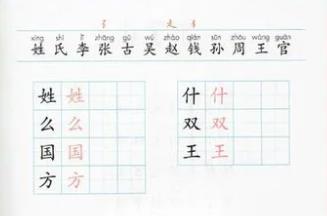 xìng shì lǐ zhāng gǔ wú zhào qián sūn zhōu wáng guān
姓 氏 李 张 古 吴 赵 钱 孙 周 王 官
姓 姓
么 么
国 国
方 方
什 什
双 双
王 王